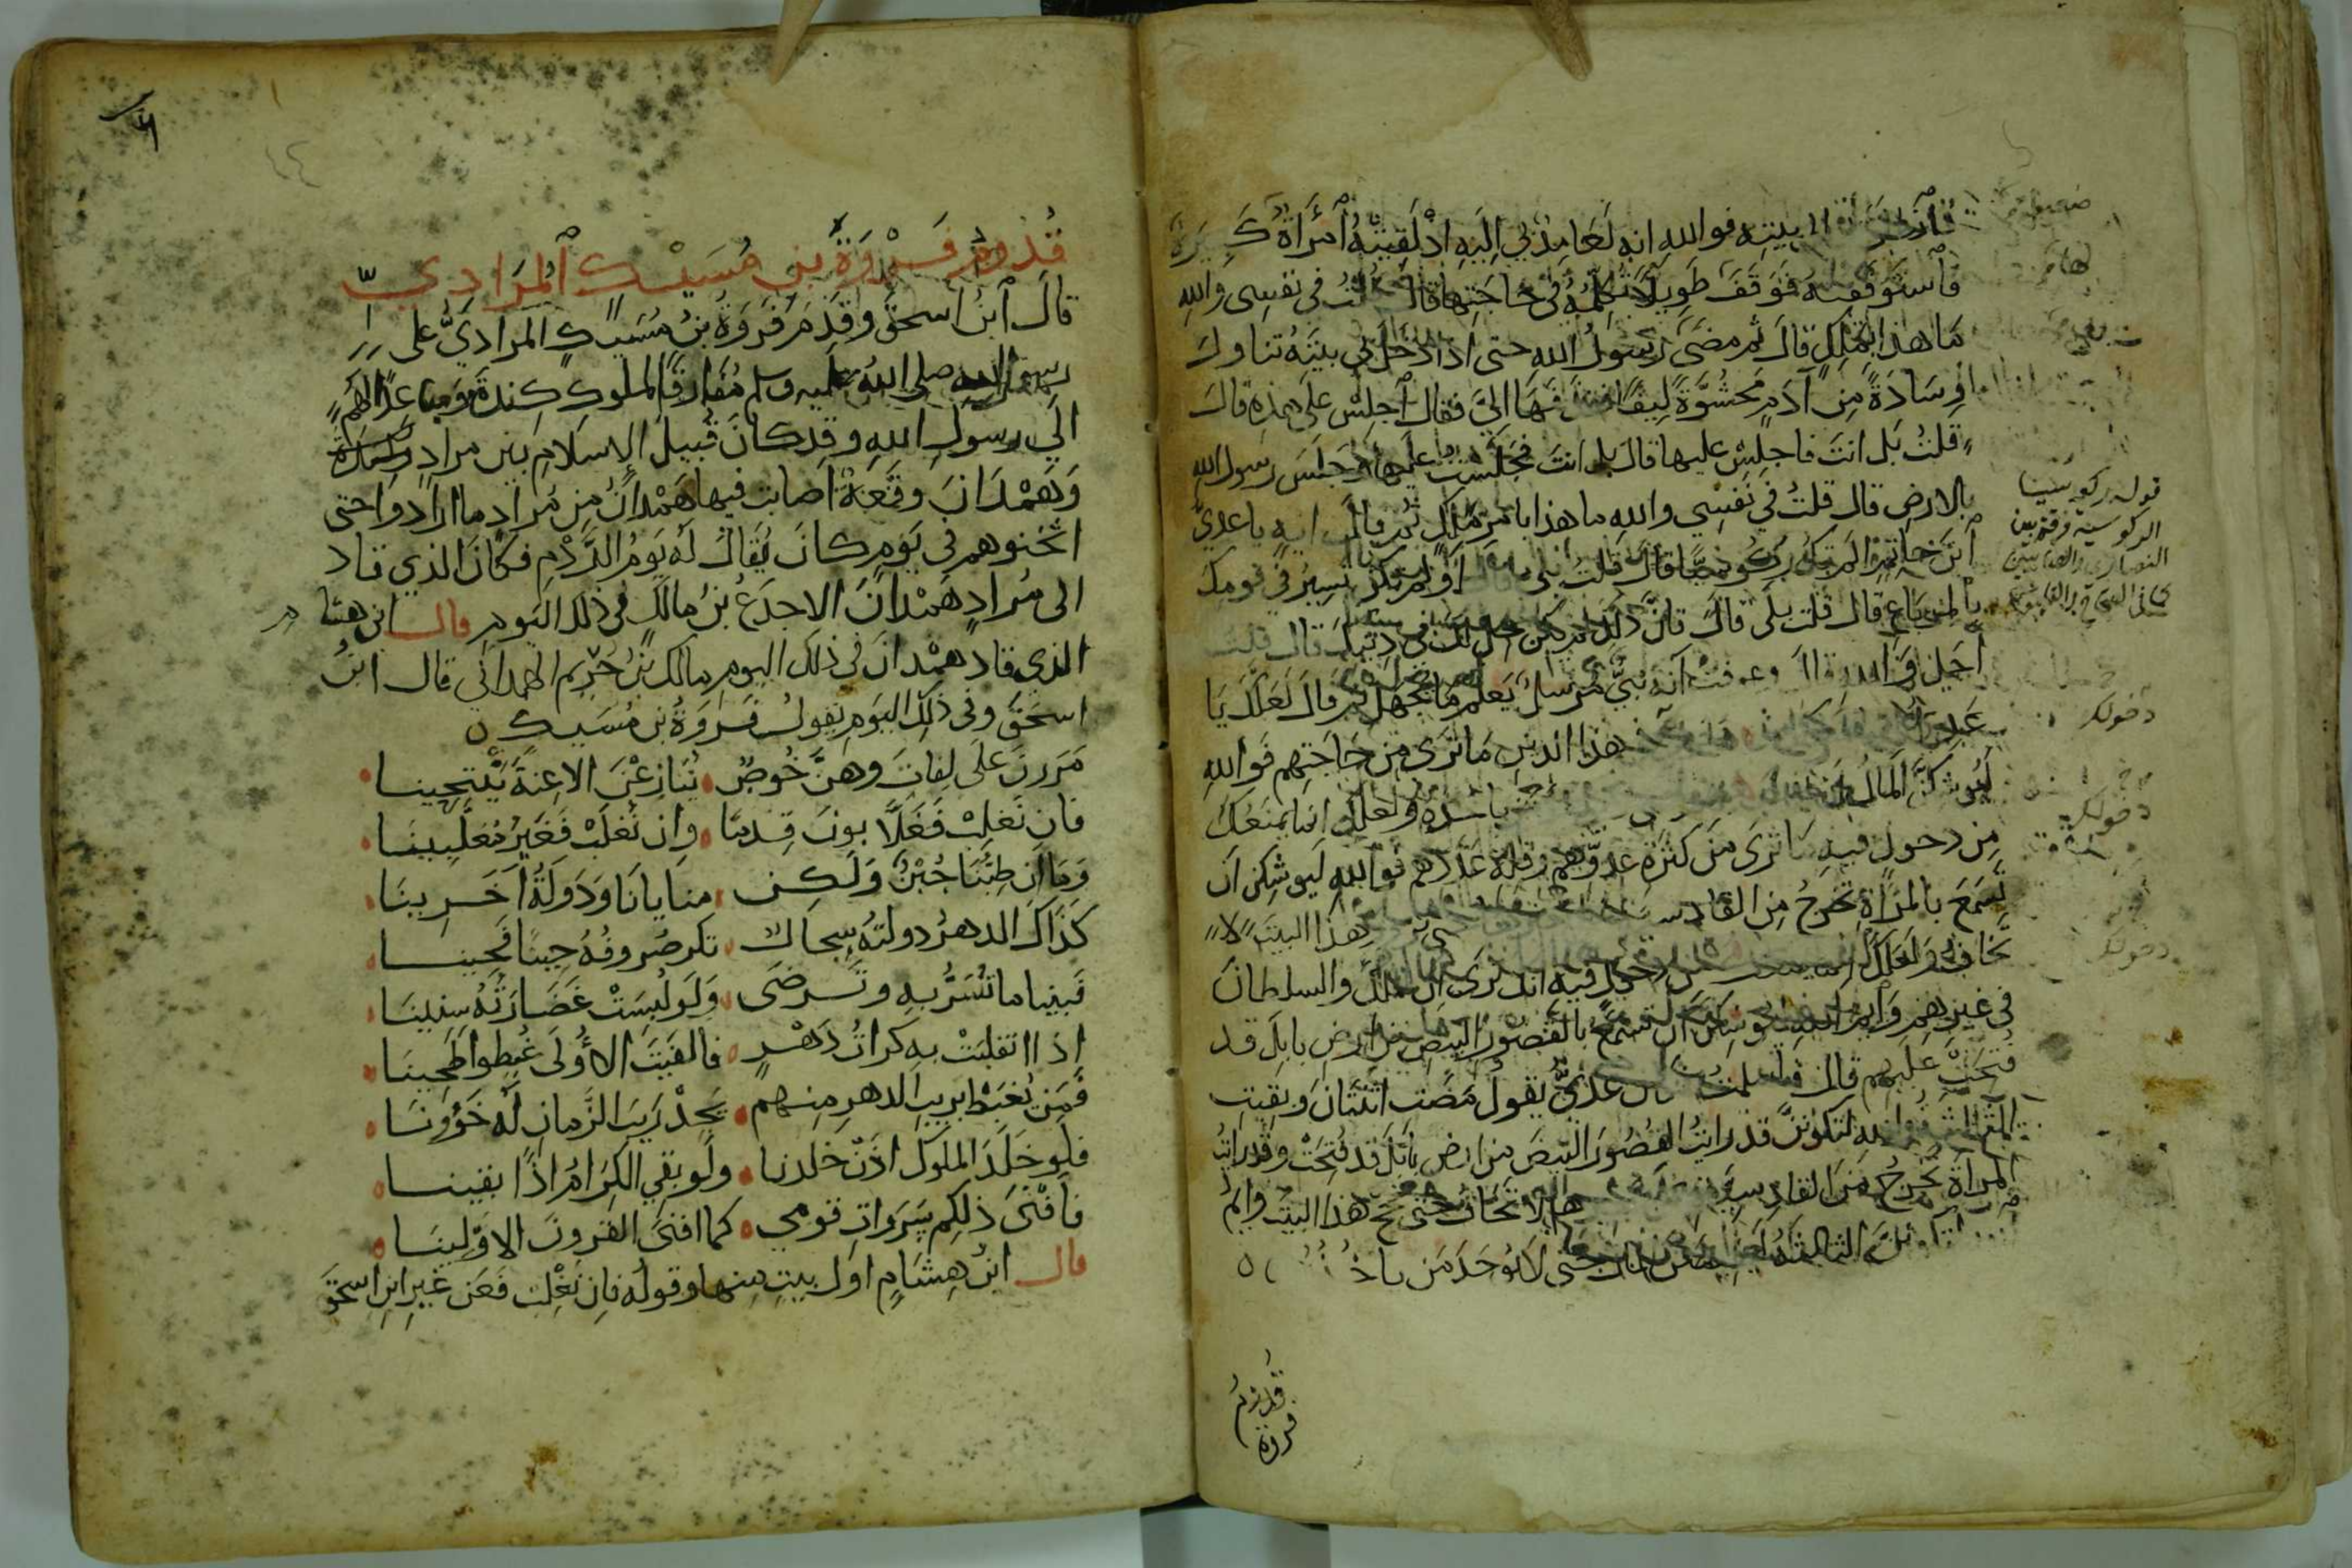 فانطلق بي الى بيته فوالله انه لعامد بي اليه اذ لقيته امرأة كبيرة
فاستوقفته فوقف طويلا تكلمه في حاجتها قال قلت في نفسي والله
ما هذا بملك قال ثم مضى رسول الله حتى اذا دخل بي بيته تناول
وسادة من ادم محشوة ليفا فقذفها الي فقال اجلس على هذه قال
قلت بل انت فاجلس عليها قال بل انت فجلست عليها وجلس رسول الله
بالارض قال قلت في نفسي والله ما هذا بامر ملك ثم قال ايه يا عدي
ابن حاتم الم تك ركوسيا قال قلت بلى قال اولم تكن تسير في قومك
بالمرباع قال قلت بلى قال فان ذلك لم يكن يحل لك في دينك قال قلت
اجل والله قال وعرفت انه نبي مرسل يعلم ما يجهل ثم قال لعلك يا
عدي هذا الدين ما ترى من حاجتهم فوالله
ليوشكن المال ياخذه ولعلك انما يمنعك
من دخول فيه ما ترى من كثرة عدوهم وقلة عددهم فوالله ليوشكن ان
تسمع بالمرأة تخرج من القادسية هذا البيت لا
تخاف ولعلك انما يمنعك من دخول فيه انك ترى ان الملك والسلطان
في غيرهم وايم الله ليوشكن ان تسمع بالقصور البيض من ارض بابل قد
فتحت عليهم قال فاسلمت عدي يقول مضت اثنتان وبقيت
الثالثة والله لتكونن قد رايت القصور البيض من ارض بابل قد فتحت وقد رايت
المرأة تخرج من القادسية لا تخاف حتى تحج هذا البيت وايم
الله لتكونن الثالثة حتى لا يوجد من ياخذه
قوله ركوسيا
الركوسية فرقة بين
النصارى والصابئين
دخولك
دخولك
دخولك
قدوم
فروة
قدوم فروة بن مسيك المرادي
قال ابن اسحق وقدم فروة بن مسيك المرادي على
رسول الله صلى الله عليه وسلم مفارقا لملوك كندة ومباعدا لهم
الى رسول الله وقد كان قبيل الاسلام بين مراد
وهمدان وقعة اصابت فيها همدان من مراد ما ارادوا حتى
اثخنوهم في يوم كان يقال له يوم الردم فكان الذي قاد
الى مراد همدان الاجدع بن مالك في ذلك اليوم قال ابن هشام
الذي قاد همدان في ذلك اليوم مالك بن حريم الهمداني قال ابن
اسحق وفي ذلك اليوم يقول فروة بن مسيك
مررن على لفات وهن خوص ينازعن الاعنة ينتحينا
فان نغلب فغلابون قدما وان نغلب فغير مغلبينا
وما ان طبنا جبن ولكن منايانا ودولة اخرينا
كذاك الدهر دولته سجال تكر صروفه حينا فحينا
فبينا ما تسر به وترضى ولو لبست غضارته سنينا
اذا انقلبت به كرات دهر فالفيت الاولى غبطوا طحينا
فمن يغبط بريب الدهر منهم يجد ريب الزمان له خؤونا
فلو خلد الملوك اذن خلدنا ولو بقي الكرام اذا بقينا
فافنى ذلكم سروات قومي كما افنى القرون الاولينا
قال ابن هشام اول بيت منها وقوله فان نغلب فعن غير ابن اسحق